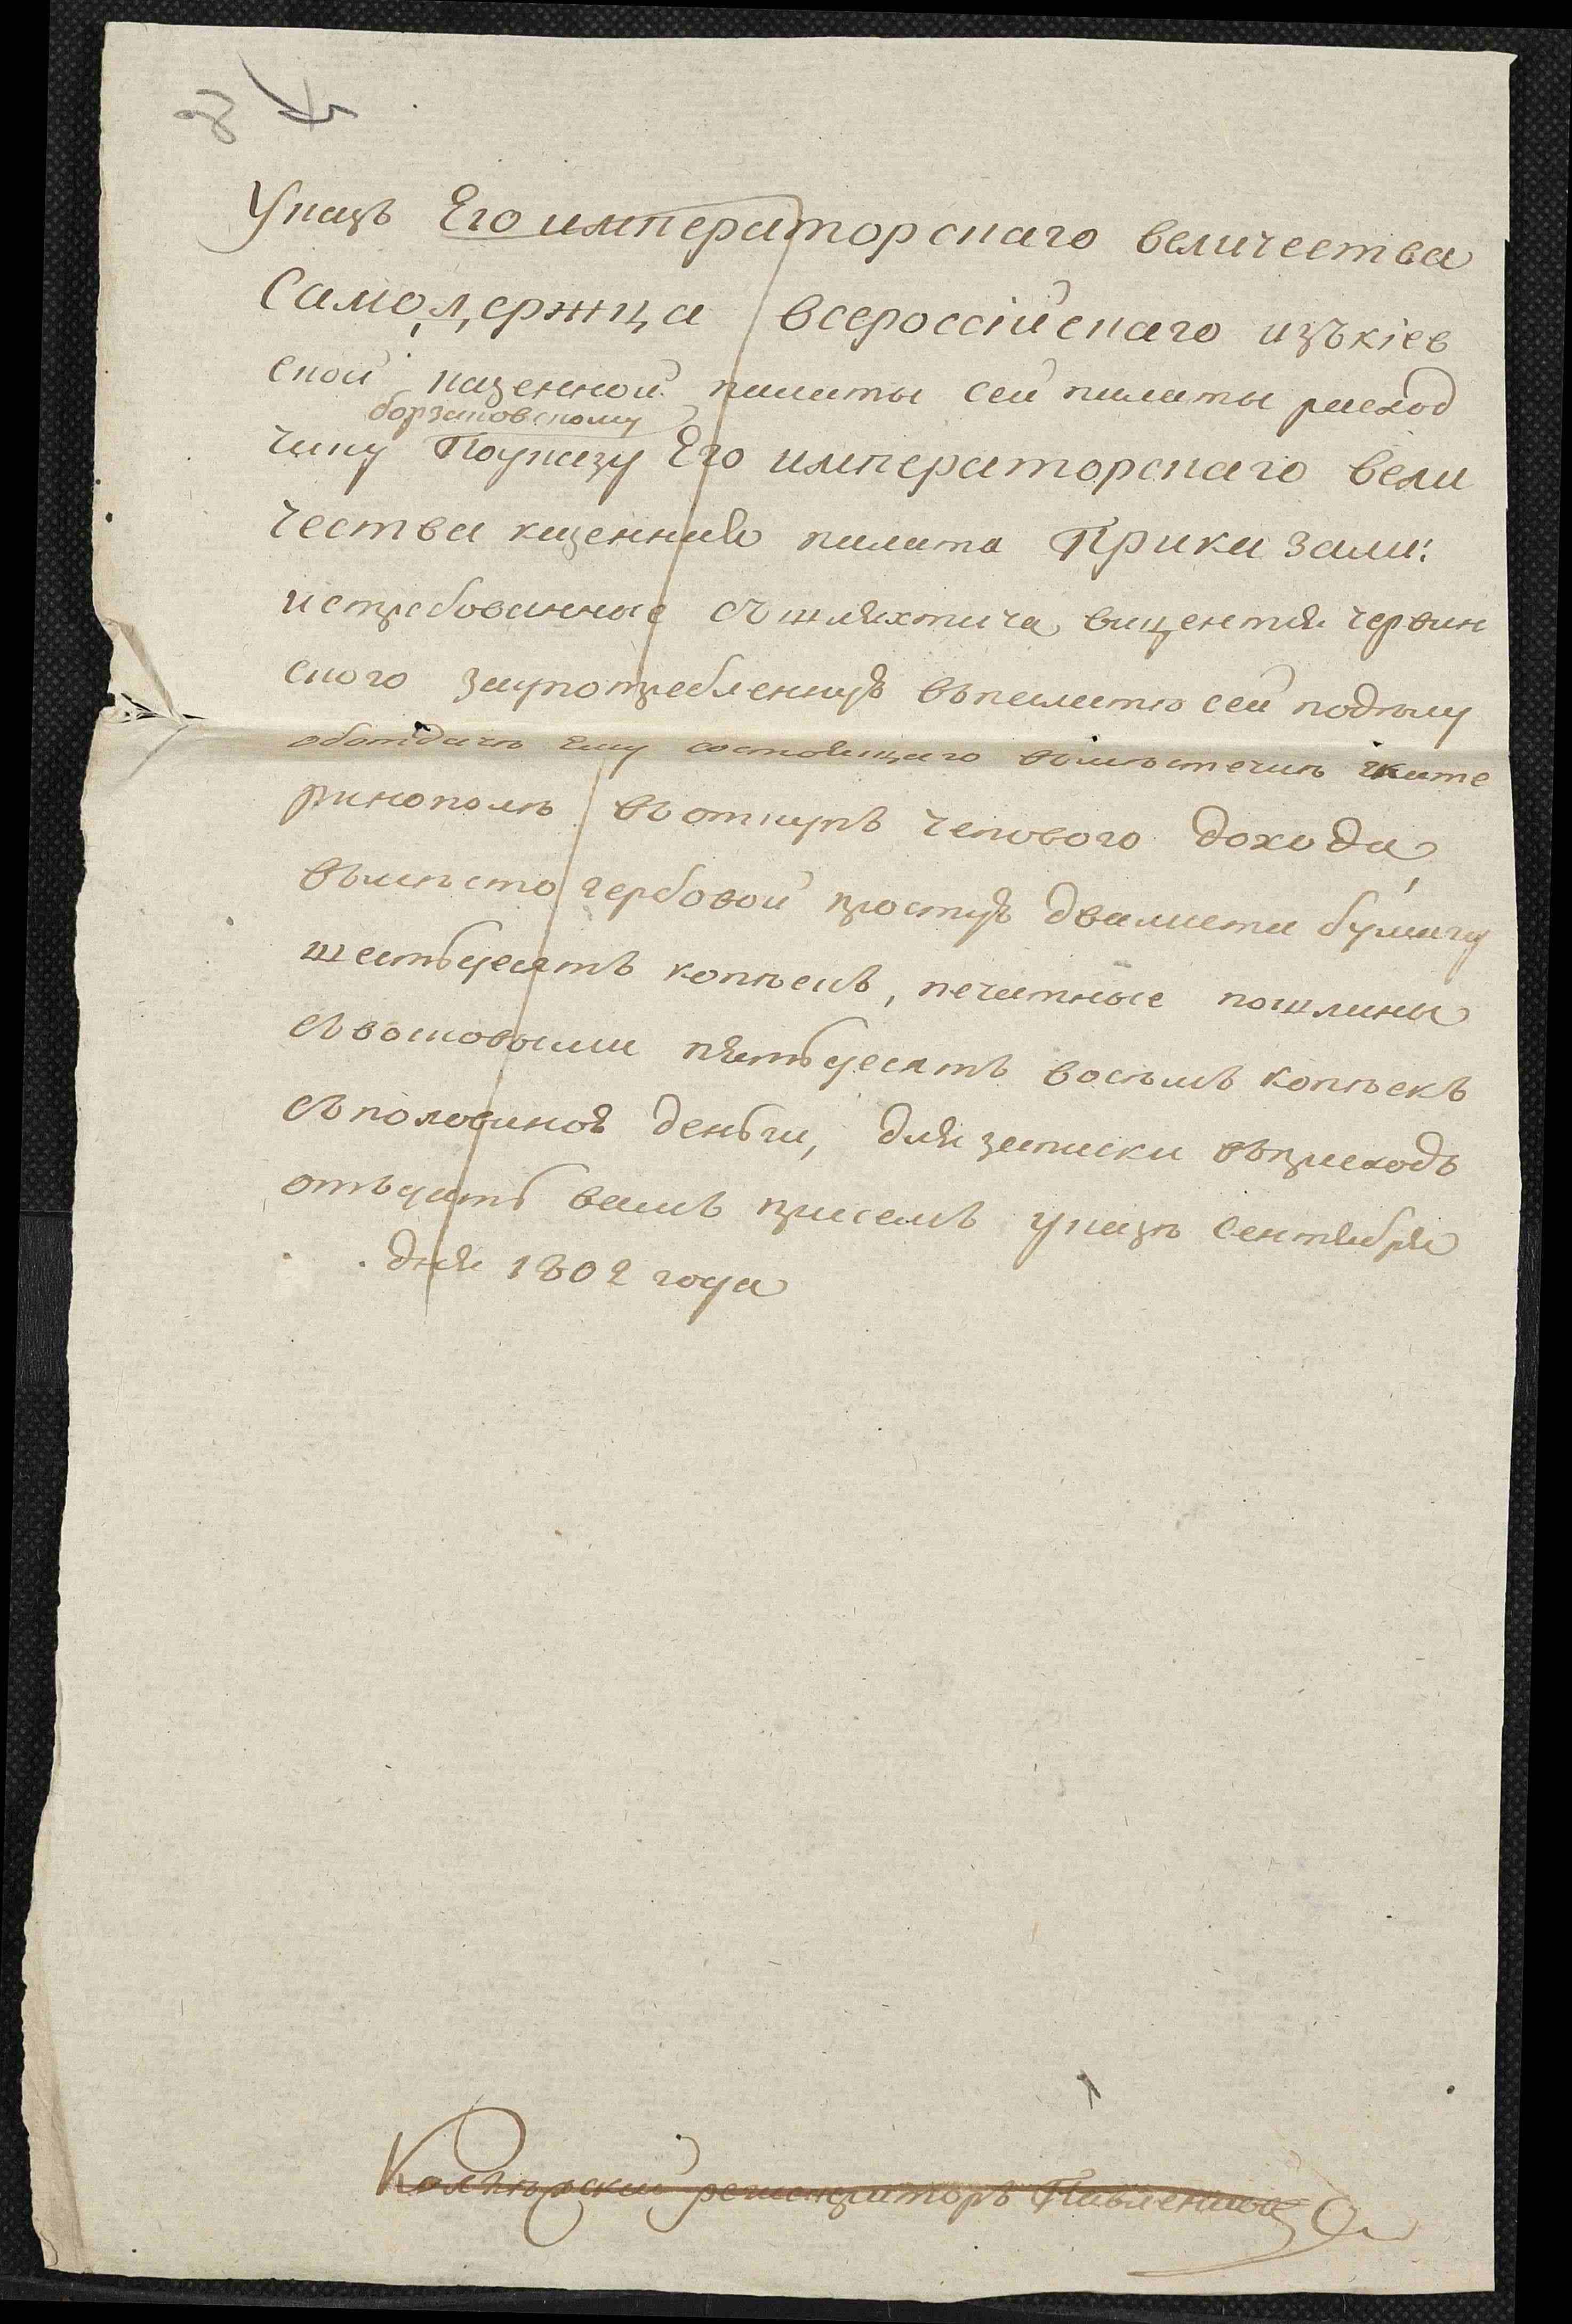 Указъ Его императорскаго величества
Самодержца всероссійскаго изъкіев
ской казенной палаты сей палаты расход
борзаковскому
чику Поуказу Его императорскаго вели
чества казенная палата Приказали:
истребованные съшляхтича вицентия червин
ского заупотребленную въпалатѣ сей
оботдачѣ ему состоящаго вомѣстечкѣ екате
ринополѣ воткупъ чоповаго дохода
вместо гербовой простую двалиста бумагу
шестьдесятъ копѣекъ, печатные пошлины
съвосковыми пятьдесятъ восемъ копѣекъ
съполовиною деньги, для записки въприходъ
отъдать вамъ присемъ указѣ сентября
дня 1802 года
Колежский регистраторъ Павленко